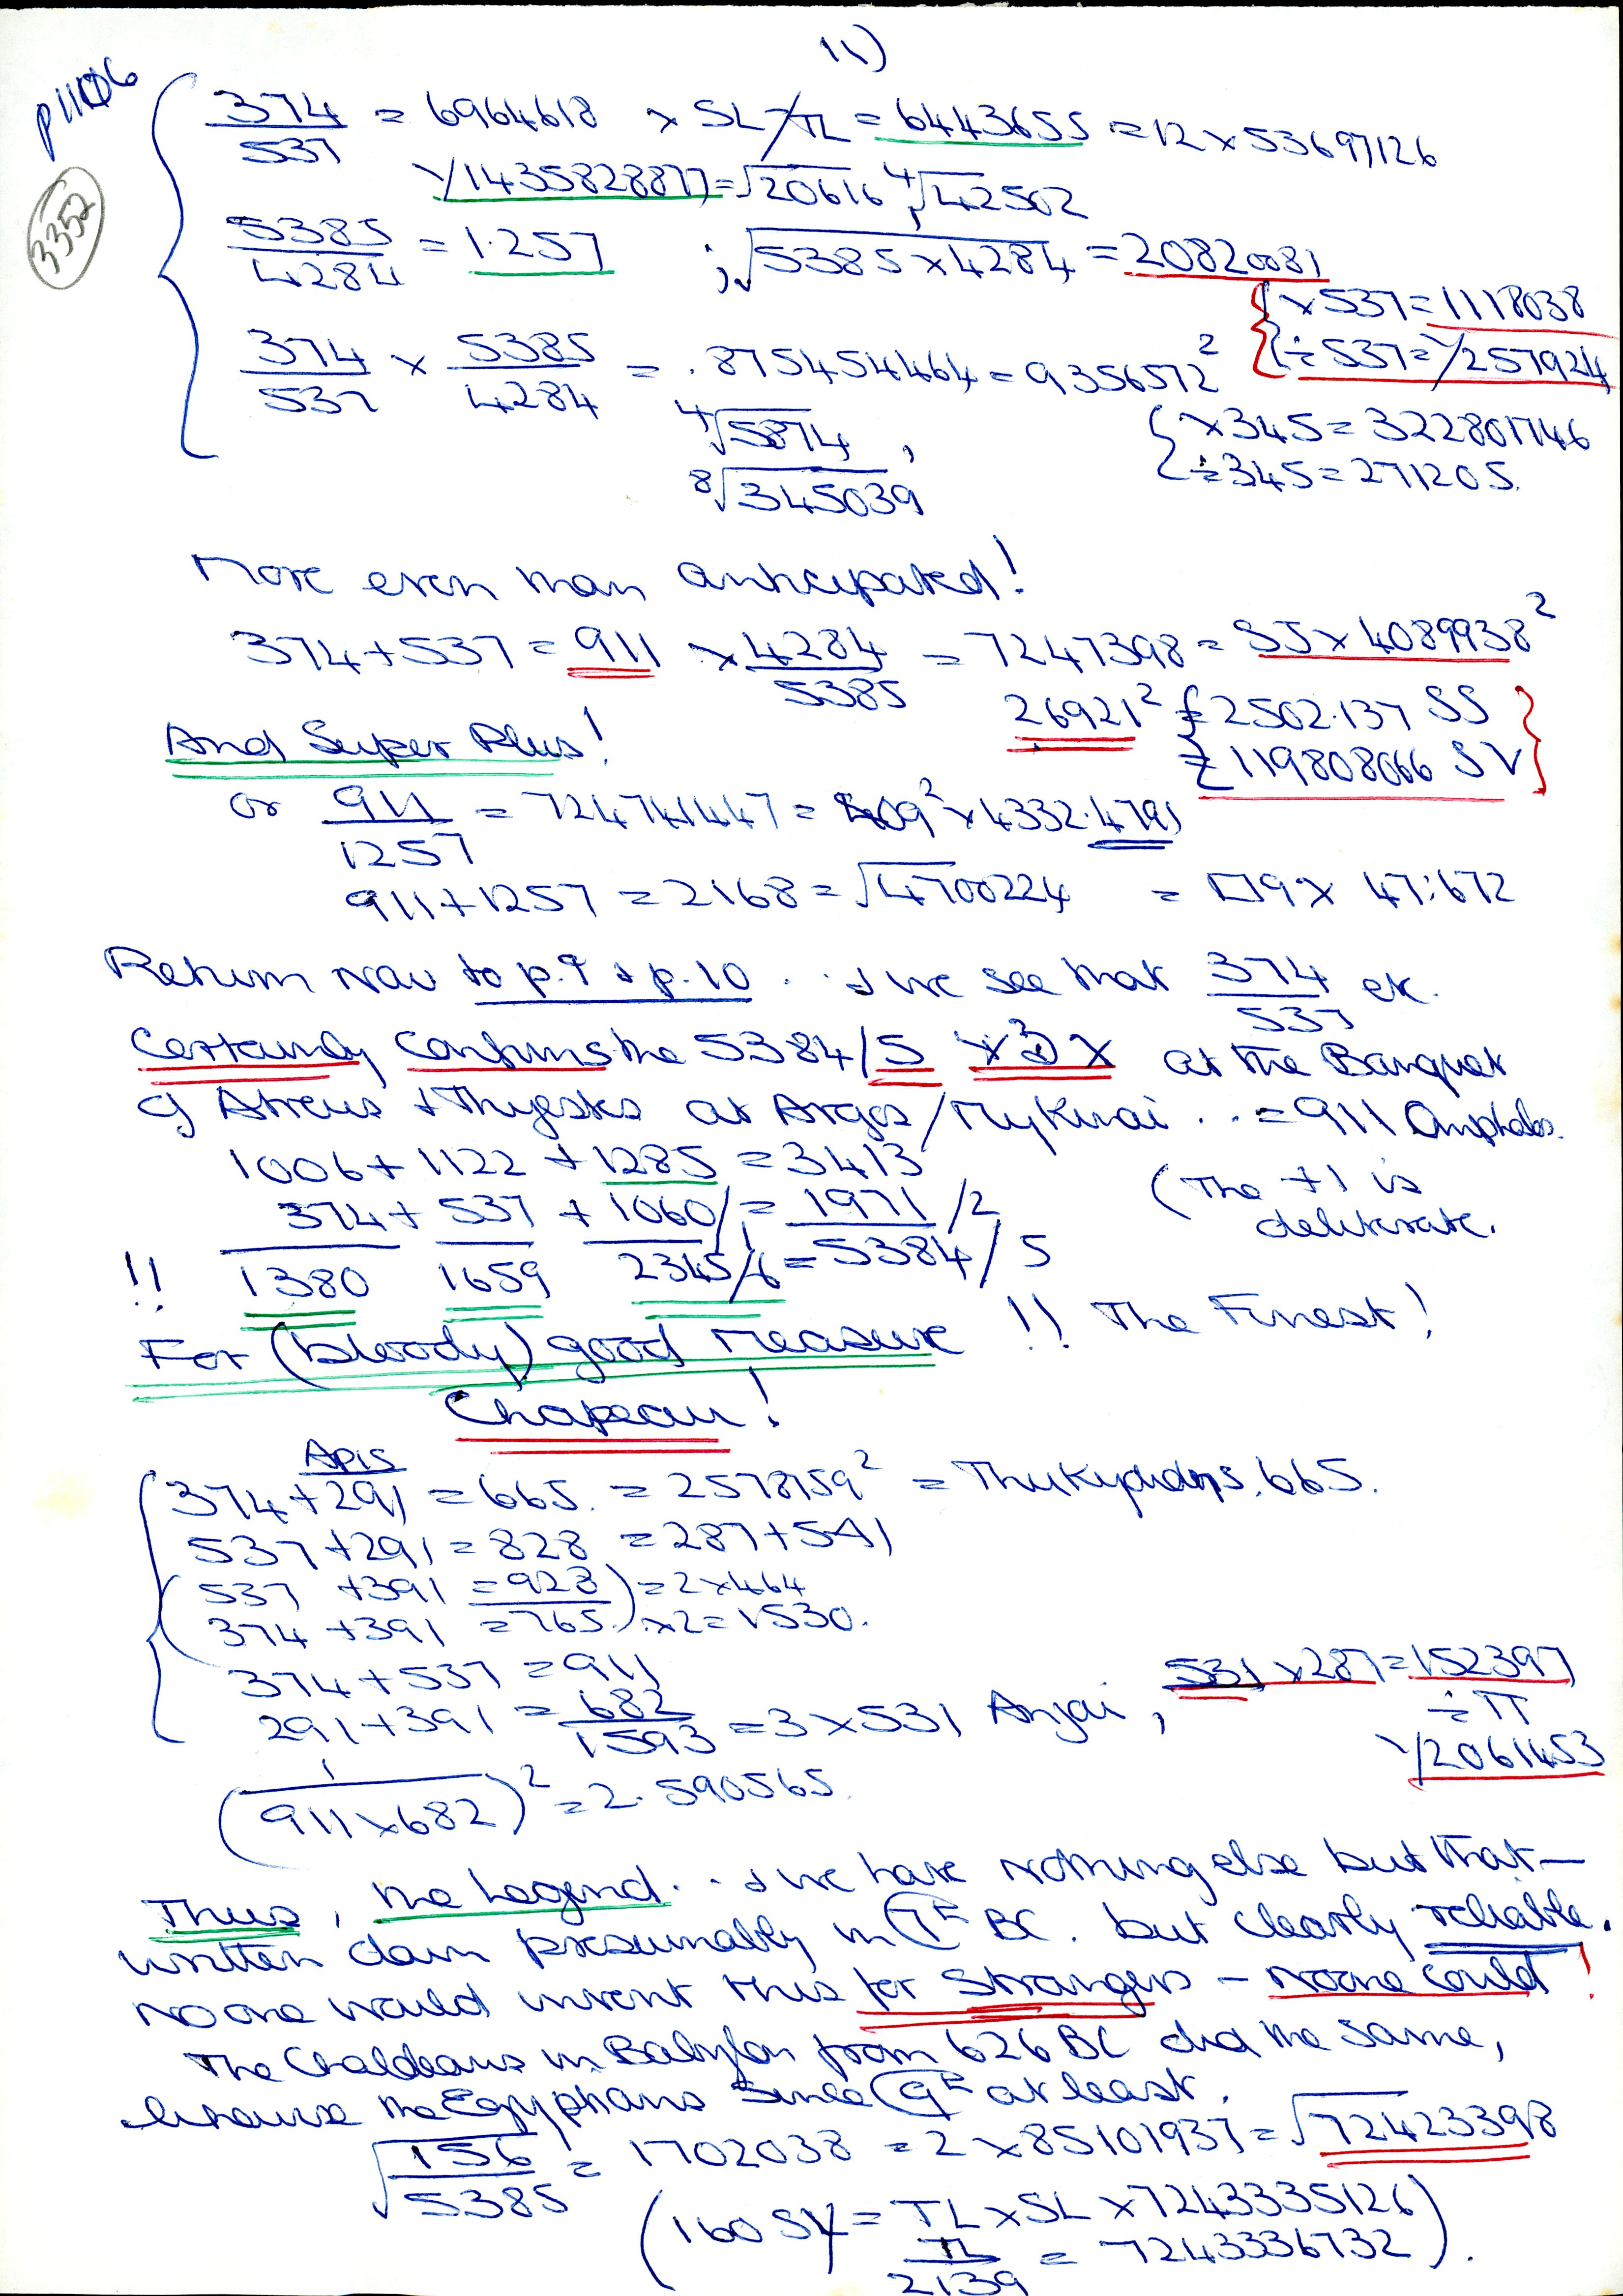 11)
p1106
3352
374/537 = 6964618 × SL/TL = 6443655 = 12 × 53697126
1/1435828877 = √20616 ∜42502
5385/4284 = 1.257 ; √5385×4284 = 20820081
{ ×537 = 1118038
÷537 = 1/257924
374/537 × 5385/4284 = .875454464 = 9356572²
∜5874 ,
{ ×345 = 322801746
÷345 = 271205.
⁸√345039
More even than anticipated!
374+537 = 911 × 4284/5385 = 7247398 = SJ × 4089938²
26921² { 2502.137 SS
119808066 SV }
And Super Plus!
or 911/1257 = 724741447 = 409² × 4332.4791
911+1257 = 2168 = √4700224 = □9 × 47:672
Return now to p.9 & p.10 . . & we see that 374/537 etc.
Certainly confirms the 5384/5 at the Banquet
of Atreus & Thyestes at Argos/Mykenai . . = 911 Omphalos.
1006 + 1122 + 1285 = 3413
(The +1 is
deliberate.
374 + 537 + 1060/1 = 1971/2
!! 1380 1659 2345/6 = 5384/5
For (bloody) good measure !! The Finest!
Chapeau!
Apis
374+291 = 665. = 2578759² = Thukydides. 665.
537+291 = 828 = 287+541
(537 +391 = 928) = 2×464
(374 +391 = 765.) ×2 = 1530.
374+537 = 911
291+391 = 682
1593 = 3×531 Anjai , 531×287 = 152397
÷ π
1/2061453
(1/911×682)² = 2.590565.
Thus, the Legend. . & we have nothing else but that –
written down presumably in 7ᴱ BC. but clearly reliable.
No one would invent this for strangers – no one could!
The Chaldeans in Babylon from 626 BC did the same,
likewise the Egyptians since 9ᴱ at least.
√156/5385 = 1702038 = 2 × 85101937 = √72423398
(160 SY = TL×SL×7243335126
TL/2139 = 7243336732).